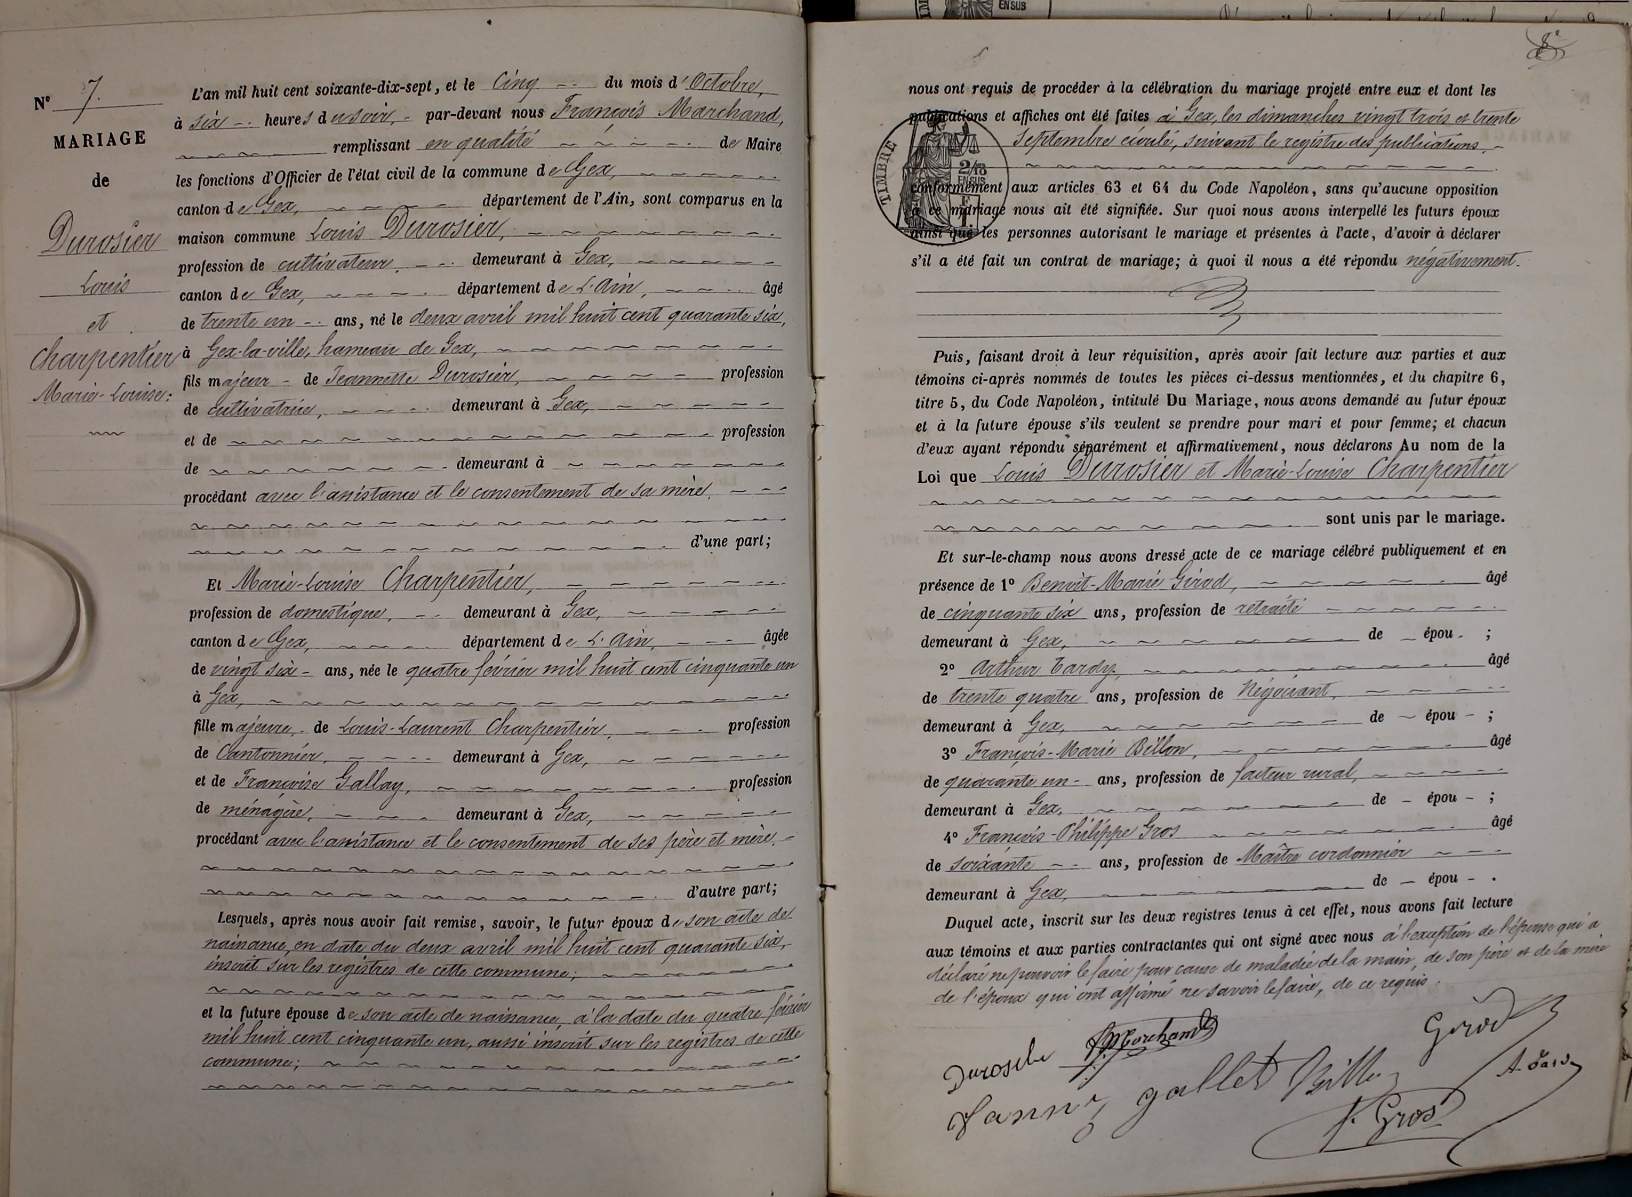 N° 7.
MARIAGE
de
Durosier
Louis
et
Charpentier
Marie-Louise:
L'an mil huit cent soixante-dix-sept, et le Cinq du mois d'Octobre,
à six heures du soir, par-devant nous François Marchand,
remplissant en qualité de Maire
les fonctions d'Officier de l'état civil de la commune de Gex,
canton de Gex, département de l'Ain, sont comparus en la
maison commune Louis Durosier,
profession de cultivateur, demeurant à Gex,
canton de Gex, département de L'Ain, âgé
de trente un ans, né le deux avril mil huit cent quarante six,
à Gex-la-ville, hameau de Gex,
fils majeur de Jeannette Durosier, profession
de cultivatrice, demeurant à Gex,
et de profession
de demeurant à
procédant avec l'assistance et le consentement de sa mère.
d'une part;
Et Marie-Louise Charpentier,
profession de domestique, demeurant à Gex,
canton de Gex, département de L'Ain, âgée
de vingt six ans, née le quatre février mil huit cent cinquante un
à Gex,
fille majeure, de Louis-Laurent Charpentier, profession
de Cantonnier, demeurant à Gex,
et de Françoise Gallay, profession
de ménagère, demeurant à Gex,
procédant avec l'assistance et le consentement de ses père et mère.
d'autre part;
Lesquels, après nous avoir fait remise, savoir, le futur époux de son acte de
naissance, en date du deux avril mil huit cent quarante six,
inscrit sur les registres de cette commune;
et la future épouse de son acte de naissance, à la date du quatre février
mil huit cent cinquante un, aussi inscrit sur les registres de cette
commune;
nous ont requis de procéder à la célébration du mariage projeté entre eux et dont les
publications et affiches ont été faites à Gex, les dimanches vingt trois et trente
Septembre écoulé, suivant le registre des publications.
TIMBRE
2/10
EN SUS
conformément aux articles 63 et 64 du Code Napoléon, sans qu'aucune opposition
à ce mariage nous ait été signifiée. Sur quoi nous avons interpellé les futurs époux
ainsi que les personnes autorisant le mariage et présentes à l'acte, d'avoir à déclarer
s'il a été fait un contrat de mariage; à quoi il nous a été répondu négativement.
Puis, faisant droit à leur réquisition, après avoir fait lecture aux parties et aux
témoins ci-après nommés de toutes les pièces ci-dessus mentionnées, et du chapitre 6,
titre 5, du Code Napoléon, intitulé Du Mariage, nous avons demandé au futur époux
et à la future épouse s'ils veulent se prendre pour mari et pour femme; et chacun
d'eux ayant répondu séparément et affirmativement, nous déclarons Au nom de la
Loi que Louis Durosier et Marie-Louise Charpentier
sont unis par le mariage.
Et sur-le-champ nous avons dressé acte de ce mariage célébré publiquement et en
présence de 1° Benoit-Marie Girod, âgé
de cinquante six ans, profession de retraité
demeurant à Gex, de épou ;
2° Arthur Tardy, âgé
de trente quatre ans, profession de Négociant,
demeurant à Gex, de épou ;
3° François-Marie Billon, âgé
de quarante un ans, profession de facteur rural,
demeurant à Gex, de épou ;
4° François-Philippe Gros âgé
de soixante ans, profession de Maître cordonnier
demeurant à Gex, de épou .
Duquel acte, inscrit sur les deux registres tenus à cet effet, nous avons fait lecture
aux témoins et aux parties contractantes qui ont signé avec nous à l'exception de l'épouse qui a
déclaré ne pouvoir le faire pour cause de maladie de la main, de son père et de la mère
de l'époux qui ont affirmé ne savoir le faire, de ce requis.
Girod
Marchand
A. Tardy
gallet Billon
F. Gros